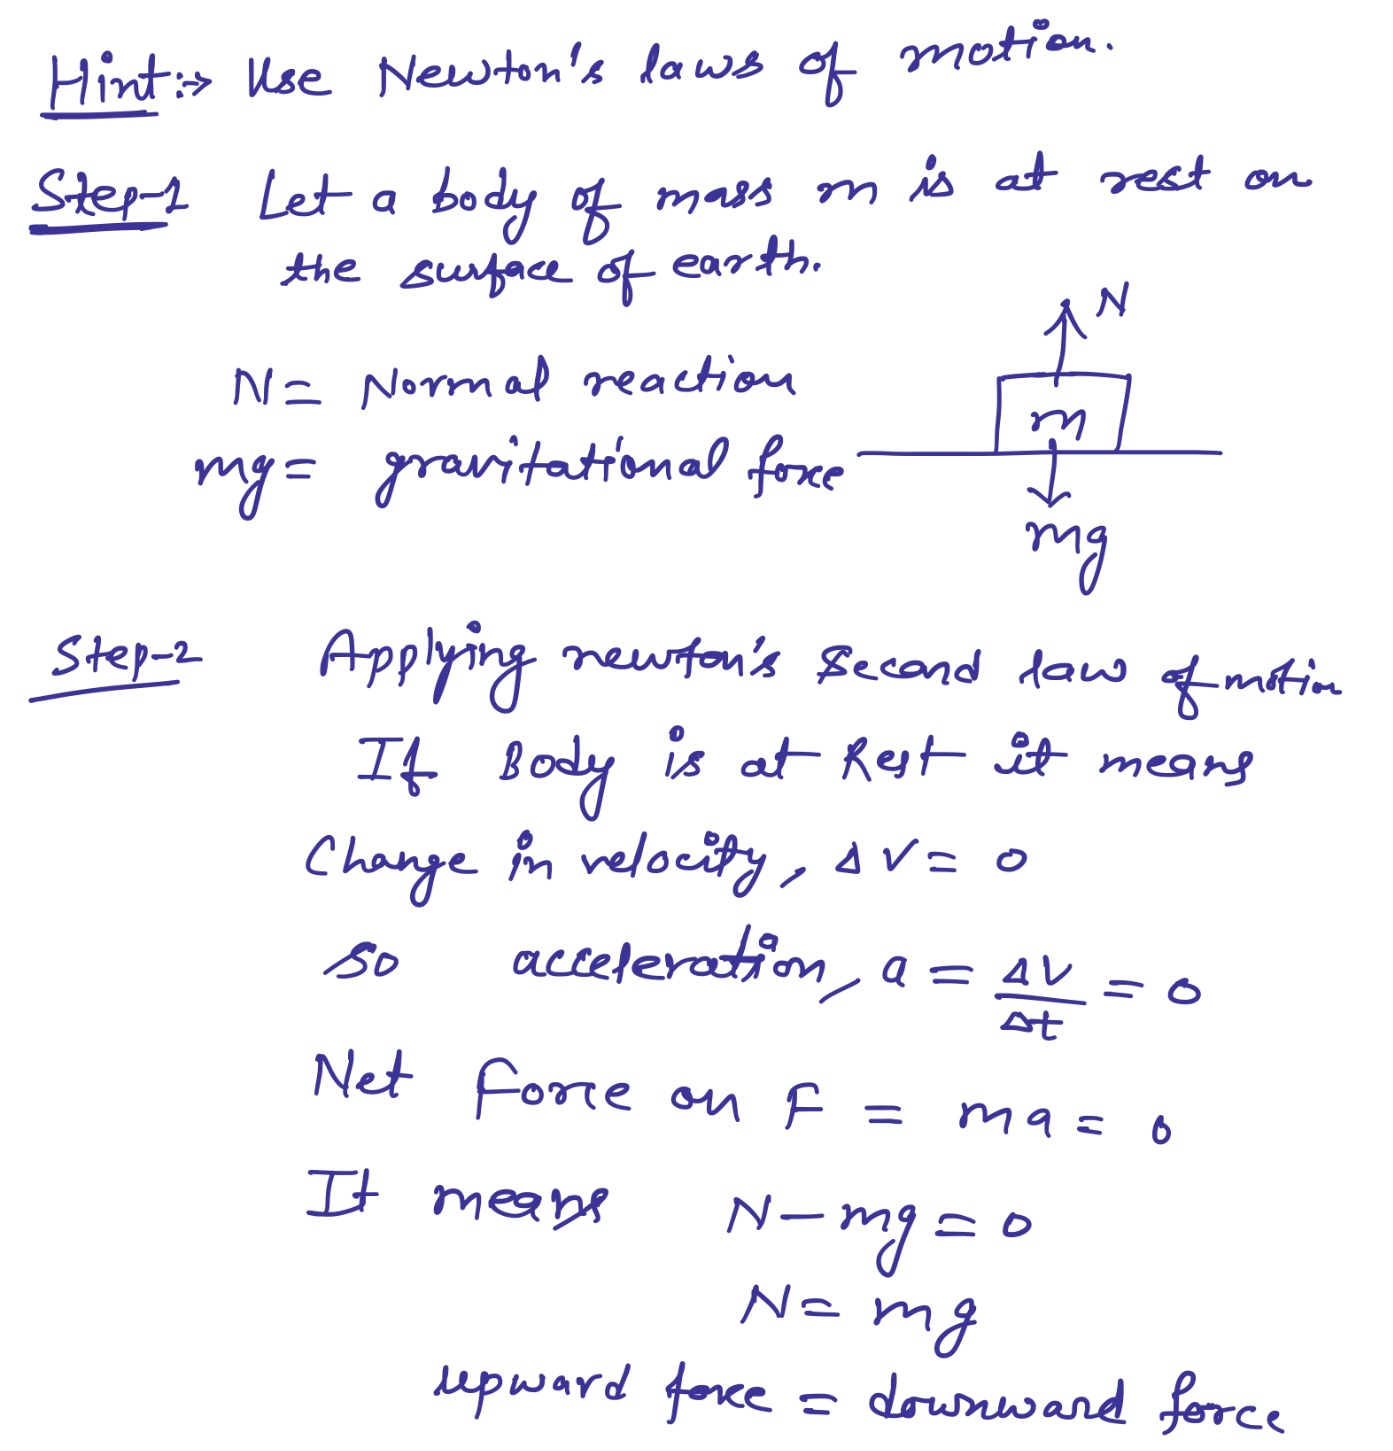 Hint:→ Use Newton's laws of motion.
Step-1 Let a body of mass m is at rest on
the surface of earth.
N
N = Normal reaction
m
mg = gravitational force
mg
Step-2 Applying newton's second law of motion
If Body is at Rest it means
Change in velocity, ΔV = 0
so acceleration, a = ΔV/Δt = 0
Net Force on F = ma = 0
It means N - mg = 0
N = mg
upward force = downward force